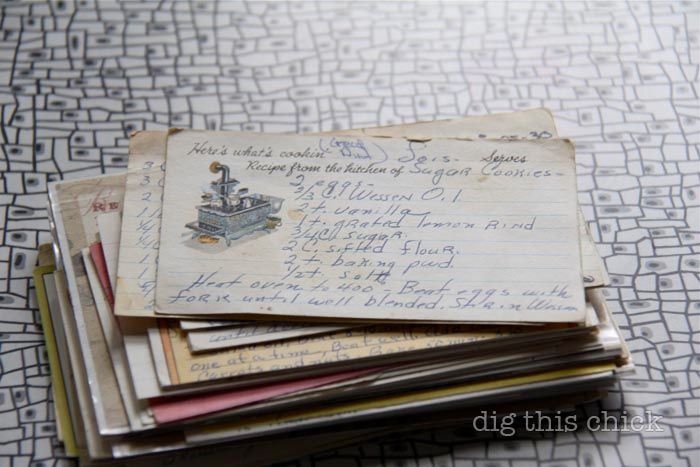 Here's what's cookin' Dois- Serves
Recipe from the kitchen of Sugar Cookies-
2 eggs-
2/3 C. Wesson Oil
2 t. vanilla
1 t. grated lemon rind
3/4 C sugar
2 C sifted flour.
2 t. baking pwd.
1/2 t. salt
Heat oven to 400 - Beat eggs with
fork until well blended. Stir in Wesson
one at a time, Beat well.
Carrots and nuts. Bake
dig this chick